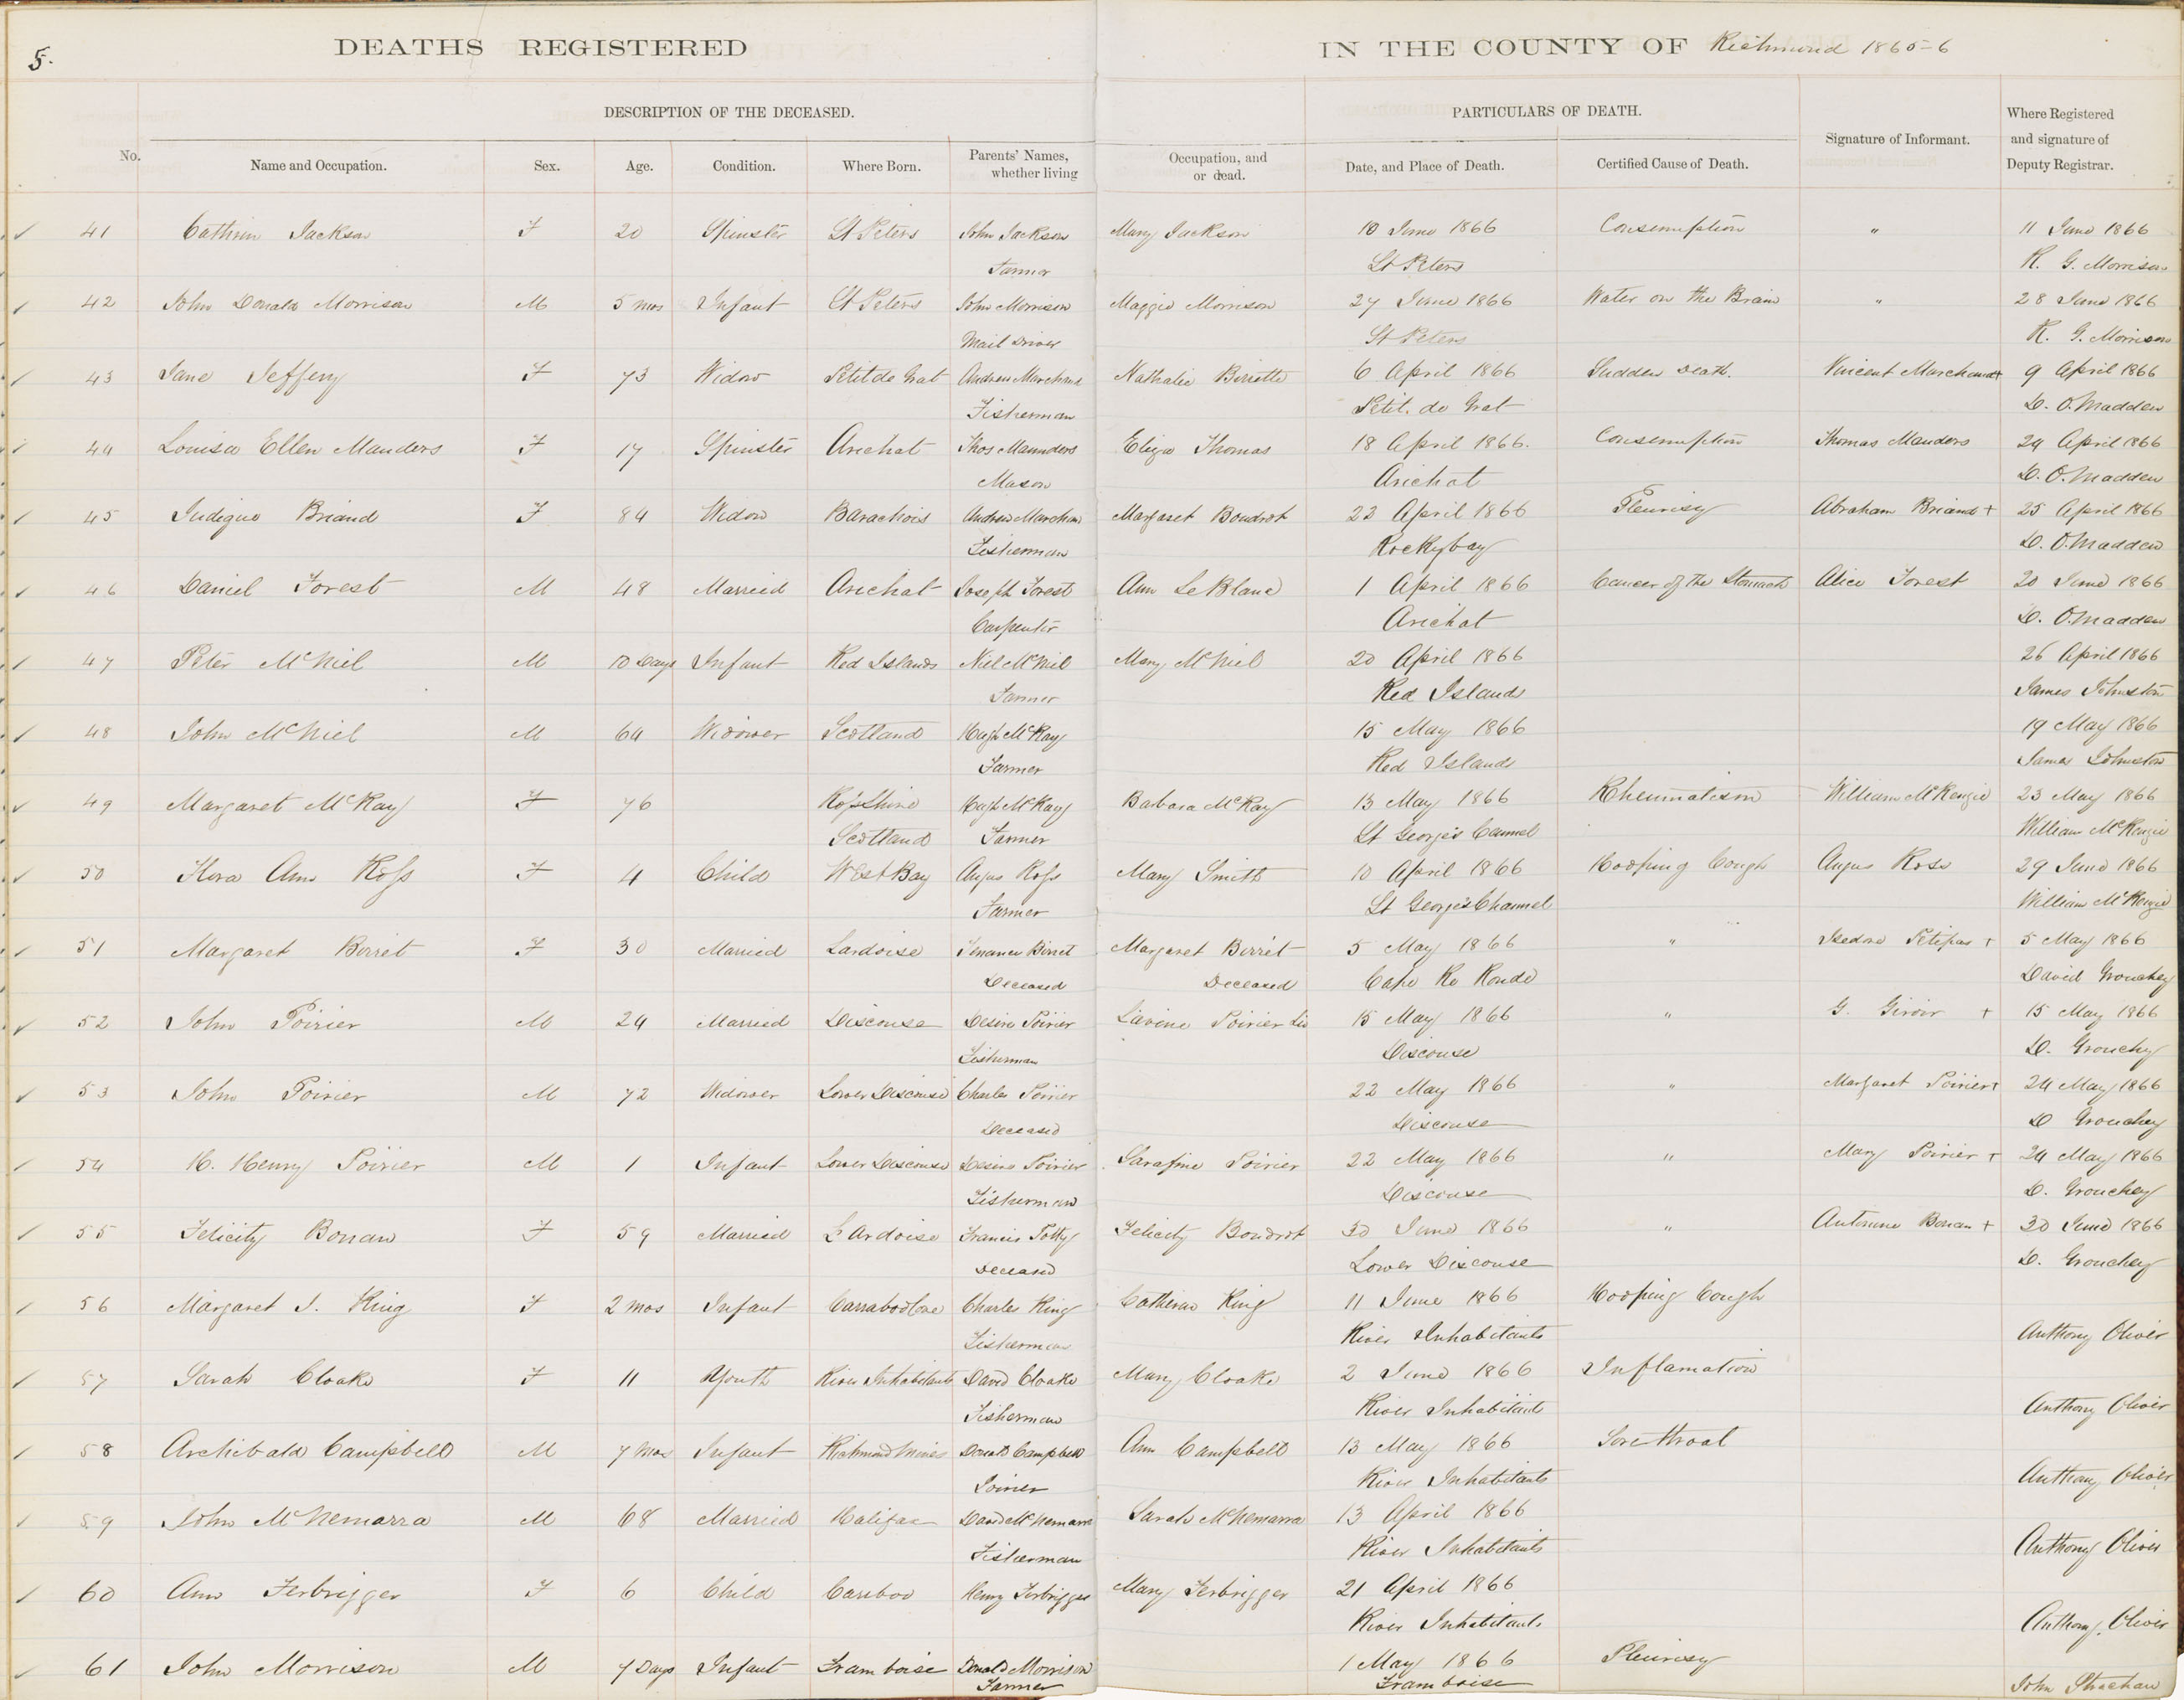 5.
DEATHS REGISTERED IN THE COUNTY OF Richmond 1865-6
DESCRIPTION OF THE DECEASED. PARTICULARS OF DEATH.
No. Name and Occupation. Sex. Age. Condition. Where Born. Parents' Names, whether living Occupation, and or dead. Date, and Place of Death. Certified Cause of Death. Signature of Informant. Where Registered and signature of Deputy Registrar.
41 Cathrin Jackson F 20 Spinster St Peters John Jackson Mary Jackson 10 June 1866 Consumption " 11 June 1866
Farmer St Peters R. G. Morrison
42 John Donald Morrison M 5 mos Infant St Peters John Morrison Maggie Morrison 27 June 1866 Water on the Brain " 28 June 1866
Mail Driver St Peters R. G. Morrison
43 Jane Jeffery F 73 Widow Petit de Grat Andrew Marchand Nathalie Birrette 6 April 1866 Sudden Death. Vincent Marchand + 9 April 1866
Fisherman Petit. de Grat D. O. Madden
44 Louisa Ellen Manders F 17 Spinster Arichat Thos Maunders Eliza Thomas 18 April 1866. Consumption Thomas Manders 24 April 1866
Mason Arichat D. O. Madden
45 Judique Briand F 84 Widow Barachois Andrew Marchan Margaret Boudrot 22 April 1866 Pleurisy Abraham Briand + 25 April 1866
Fisherman Rockybay D. O. Madden
46 Daniel Forest M 48 Married Arichat Joseph Forest Ann LeBlanc 1 April 1866 Cancer of the Stomach Alice Forest 20 June 1866
Carpenter Arichat D. O. Madden
47 Peter McNiel M 10 Days Infant Red Islands Niel McNiel Mary McNiel 20 April 1866 26 April 1866
Farmer Red Islands James Johnston
48 John McNiel M 64 Widower Scotland Hugh McKay 15 May 1866 19 May 1866
Farmer Red Islands James Johnston
49 Margaret McKay F 76 RossShire Hugh McKay Barbara McKay 13 May 1866 Rheumatism William McKenzie 23 May 1866
Scotland Farmer St George's Cannel William McKenzie
50 Flora Ann Ross F 4 Child West Bay Angus Ross Mary Smith 10 April 1866 Hooping Cough Angus Ross 29 June 1866
Farmer St George's Channel William McKenzie
51 Margaret Birret F 30 Married Lardoise Birret Margaret Birret 5 May 1866 " Isedore Petipas + 5 May 1866
Deceased Deceased Cape Ro Ronde David Grouchey
52 John Poirier M 24 Married Discouse Desire Poirier Lavine Poirier 15 May 1866 " G. Giroir + 15 May 1866
Fisherman Discouse D. Grouchy
53 John Poirier M 72 Widower Lower Discouse Charles Poirier 22 May 1866 " Margaret Poirier + 24 May 1866
Deceased Discouse D Grouchey
54 H. Henry Poirier M 1 Infant Lower Discouse Desire Poirier Sarafine Poirier 22 May 1866 " Mary Poirier + 24 May 1866
Fisherman Discouse D. Grouchey
55 Felicity Bonan F 59 Married L'Ardoise Francis Potty Felicity Boudrot 30 June 1866 " Antoine Bonan + 30 June 1866
Deceased Lower Discouse D. Grouchey
56 Margaret J. King F 2 mos Infant Carraboo Cove Charles King Catherine King 11 June 1866 Hooping Cough
Fisherman River Inhabitants Anthony Oliver
57 Sarah Cloake F 11 Youth River Inhabitants David Cloake Mary Cloake 2 June 1866 Inflamation
Fisherman River Inhabitants Anthony Oliver
58 Archibald Campbell M 7 Mos Infant Richmond Mines Donald Campbell Ann Campbell 13 May 1866 Sore throat
Joiner River Inhabitants Anthony Oliver
59 John McNemarra M 68 Married Halifax David McNemarra Sarah McNemarra 13 April 1866
Fisherman River Inhabitants Anthony Oliver
60 Ann Ferbrigger F 6 Child Cariboo Henry Ferbrigger Mary Ferbrigger 21 April 1866
River Inhabitants Anthony. Oliver
61 John Morrison M 7 Days Infant Framboise Donald Morrison 1 May 1866 Pleurisy
Farmer Framboise John Strachan